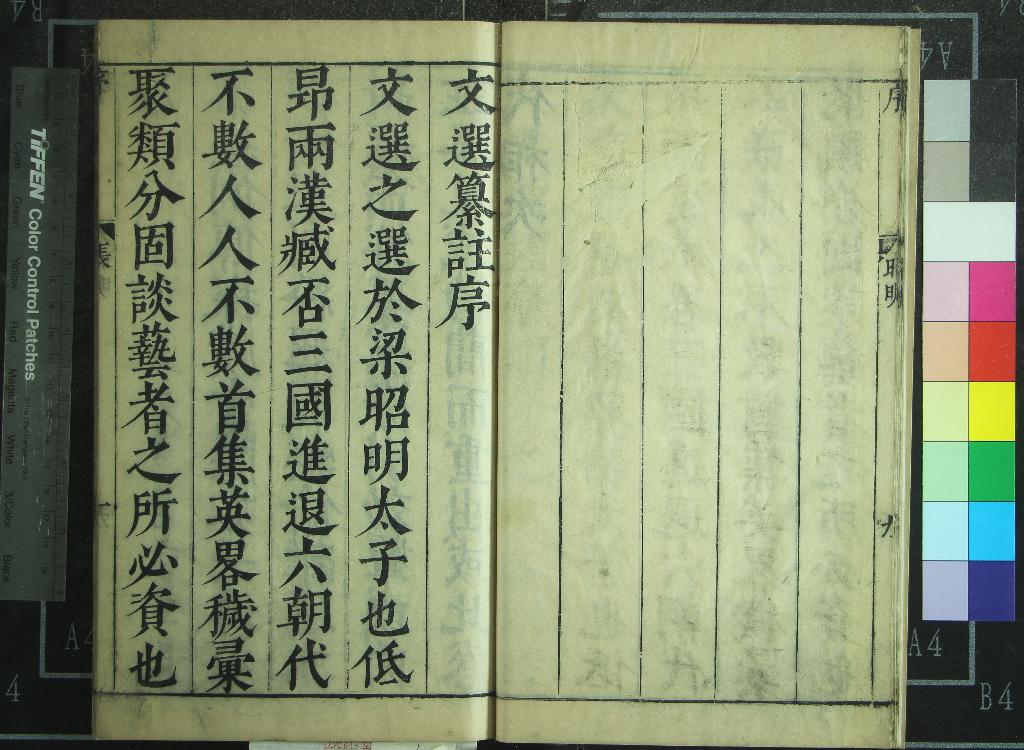 文選纂註序
文選之選於梁昭明太子也低
昂兩漢臧否三國進退六朝代
不數人人不數首集英畧穢彙
聚類分固談藝者之所必資也
序
九
TIFFEN Color Control Patches
Blue
Cyan
Green
Yellow
Red
Magenta
White
3/Color
Black
A4
A4
A4
B4
4